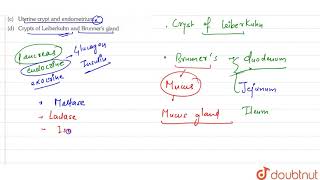 (c) Uterine crypt and endometrium
(d) Crypts of Leiberkuhn and Brunner's gland
Pancreas
endocrine
exocrine
Glucagon
Insulin
→ Maltase
→ Lactase
→ Is
• Crypt of Leiberkuhn
• Brunner's
Mucus
Mucus gland
duodenum
Jejunum
Ileum
doubtnut